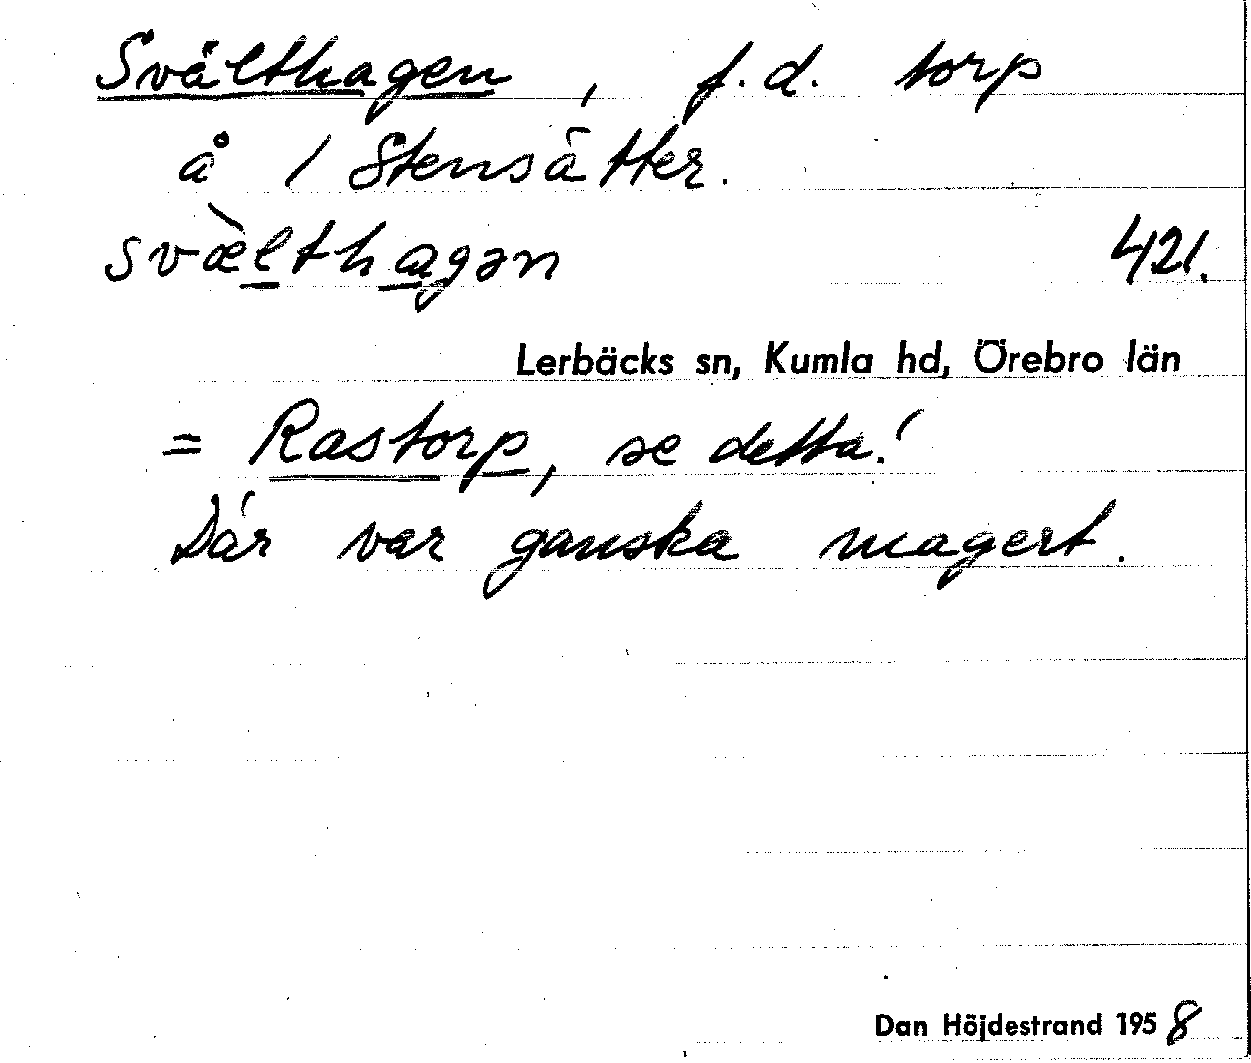 Svälthagen, f.d. torp
å 1 Stensätter.
svæ̀lthagən 421.
Lerbäcks sn, Kumla hd, Örebro län
= Rastorp, se detta!
Där var ganska magert.
Dan Höjdestrand 1958